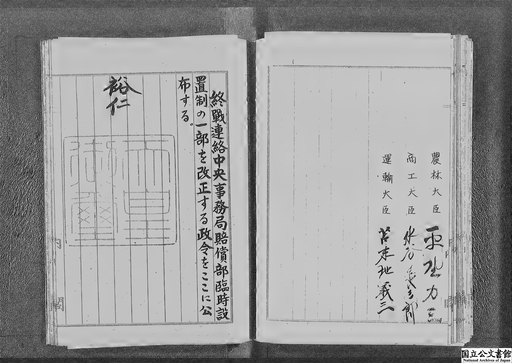 農林大臣 平野力三
商工大臣 水谷長三郎
運輸大臣 苫米地義三
終戰連絡中央事務局賠償部臨時設
置制の一部を改正する政令をここに公
布する。
裕仁
天皇
御璽
内閣
国立公文書館
National Archives of Japan